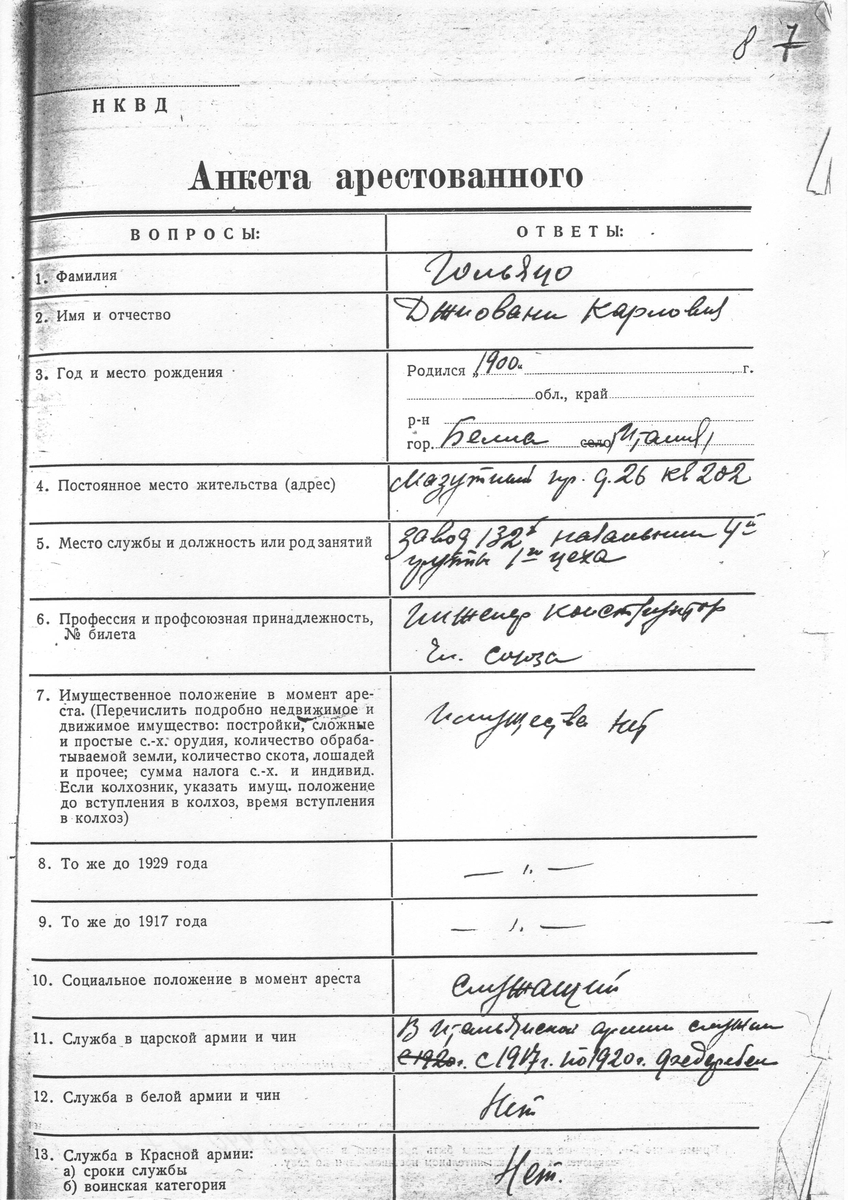 8 7
НКВД
Анкета арестованного
ВОПРОСЫ: ОТВЕТЫ:
1. Фамилия Гольяцо
2. Имя и отчество Джиовани Карлович
3. Год и место рождения Родился „1900" г.
обл., край
р-н
гор. Белиа село (Италия)
4. Постоянное место жительства (адрес) Мазутный пр. д. 26 кв 202
5. Место службы и должность или род занятий завод 132й начальник 4й
группы 1го цеха
6. Профессия и профсоюзная принадлежность, № билета Инженер конструктор
Чл. союза
7. Имущественное положение в момент аре-
ста. (Перечислить подробно недвижимое и
движимое имущество: постройки, сложные
и простые с.-х. орудия, количество обраба-
тываемой земли, количество скота, лошадей
и прочее; сумма налога с.-х. и индивид.
Если колхозник, указать имущ. положение
до вступления в колхоз, время вступления
в колхоз) Имущества нет
8. То же до 1929 года — ı. —
9. То же до 1917 года — ı. —
10. Социальное положение в момент ареста служащий
11. Служба в царской армии и чин В Итальянской армии служил
с 1920г. с 1917г. по 1920г.
12. Служба в белой армии и чин Нет
13. Служба в Красной армии:
а) сроки службы
б) воинская категория Нет.